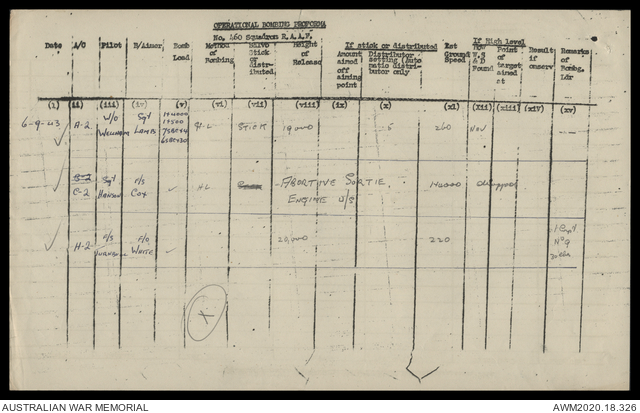 OPERATIONAL BOMBING PROFORMA
No. 460 Squadron R.A.A.F.
Date A/C Pilot B/Aimer Bomb Load Method of Bombing Stick or distributed. Height of Release If stick or distributed Amount aimed off aiming point Distributor setting (Auto matic distributor only Est Ground Speed If High level How W.S & D Found Point of target aimed at Result if observ Remarks of Bombg. Ldr
(i) (ii) (iii) (iv) (v) (vi) (vii) (viii) (ix) (x) (xi) (xii) (xiii) (xiv) (xv)
6-9-43 A-2 W/O Sgt Lamb 1x4000 H-L STICK 19,000 5 260 Nav
C-2 Sgt Hanson F/S Cox H L ABORTIVE SORTIE. 1x4000
ENGINE U/S
H-2 F/S F/O WHITE 20,000 220
X
AUSTRALIAN WAR MEMORIAL
AWM2020.18.326